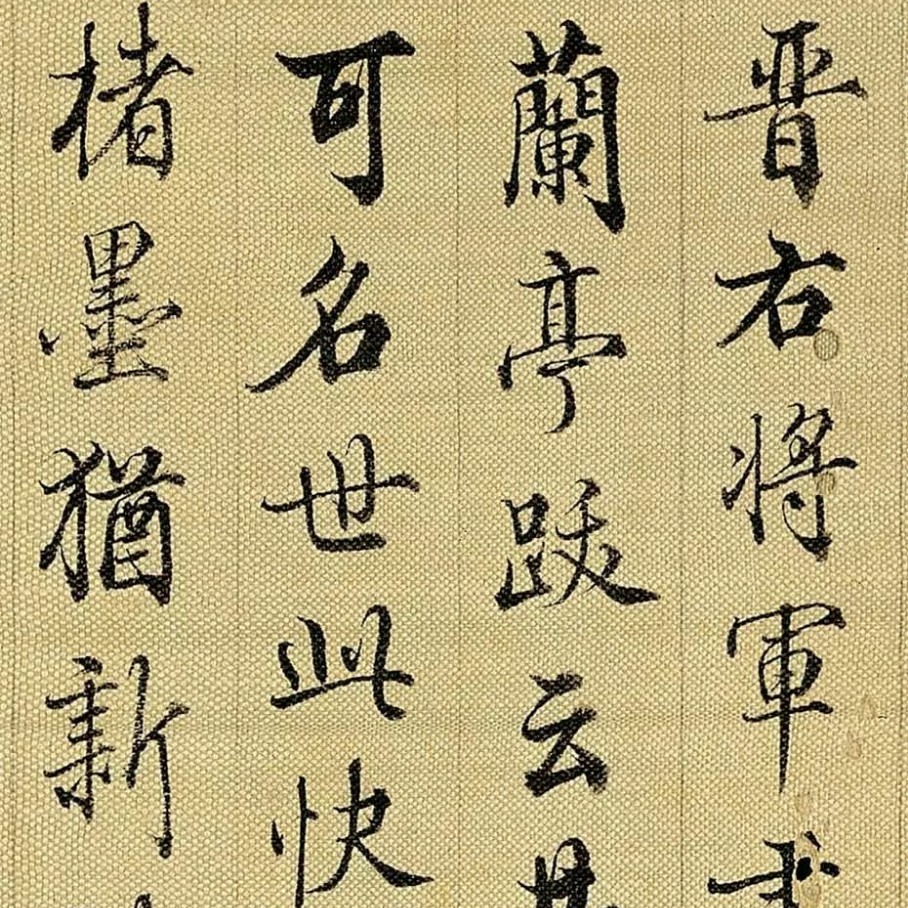 晋右將軍
蘭亭跋云
可名世此快
楮墨猶新